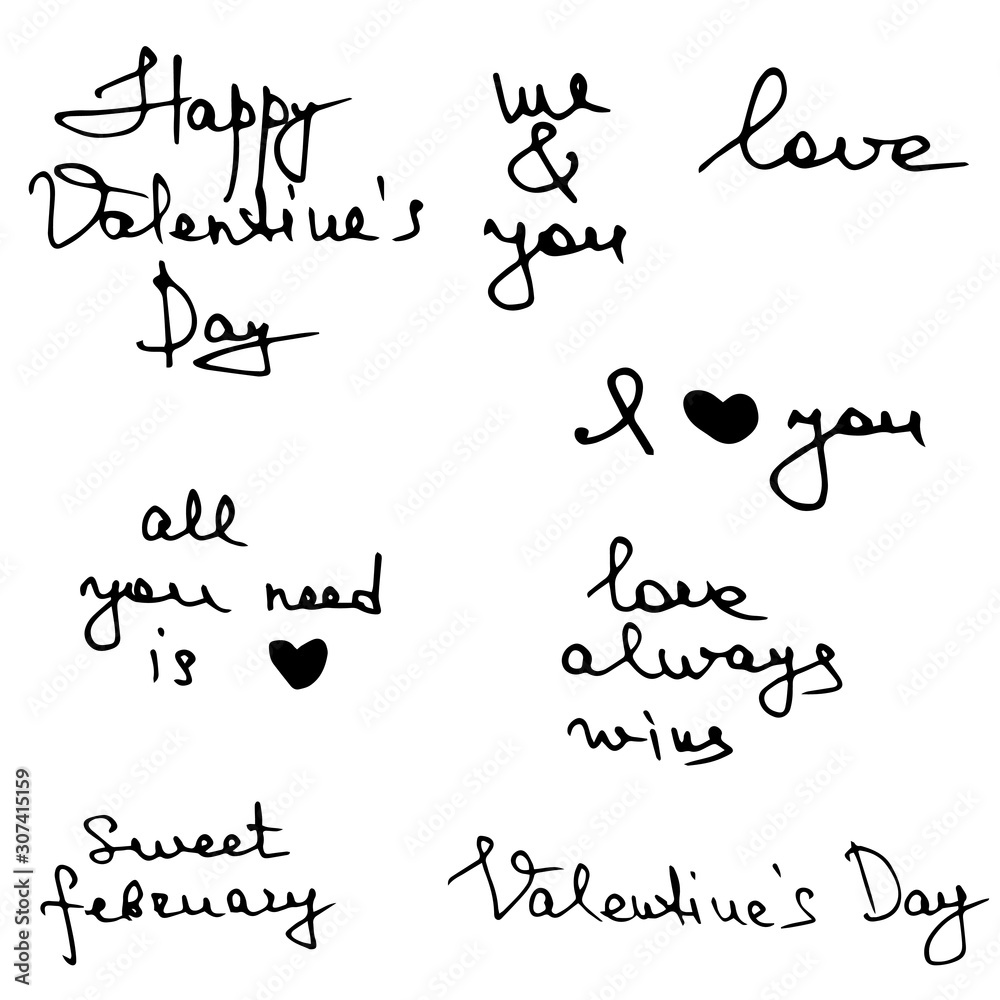 Happy
Valentine's
Day
me
&
you
love
I ♥ you
all
you need
is ♥
love
always
wins
sweet
february
Valentine's Day
Adobe Stock | #307415159